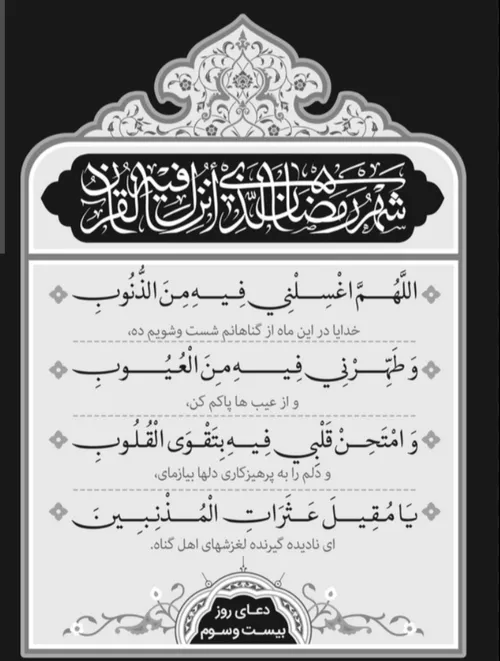 شَهْرُ رَمَضَانَ الَّذِي أُنْزِلَ فِيهِ الْقُرْآنُ
اللَّهُمَّ اغْسِلْنِي فِيهِ مِنَ الذُّنُوبِ
خدایا در این ماه از گناهانم شست وشویم ده،
وَ طَهِّرْنِي فِيهِ مِنَ الْعُيُوبِ
و از عیب ها پاکم کن،
وَ امْتَحِنْ قَلْبِي فِيهِ بِتَقْوَى الْقُلُوبِ
و دلم را به پرهیزکاری دلها بیازمای،
يَا مُقِيلَ عَثَرَاتِ الْمُذْنِبِينَ
ای نادیده گیرنده لغزشهای اهل گناه.
دعـای روز
بیست وسوم